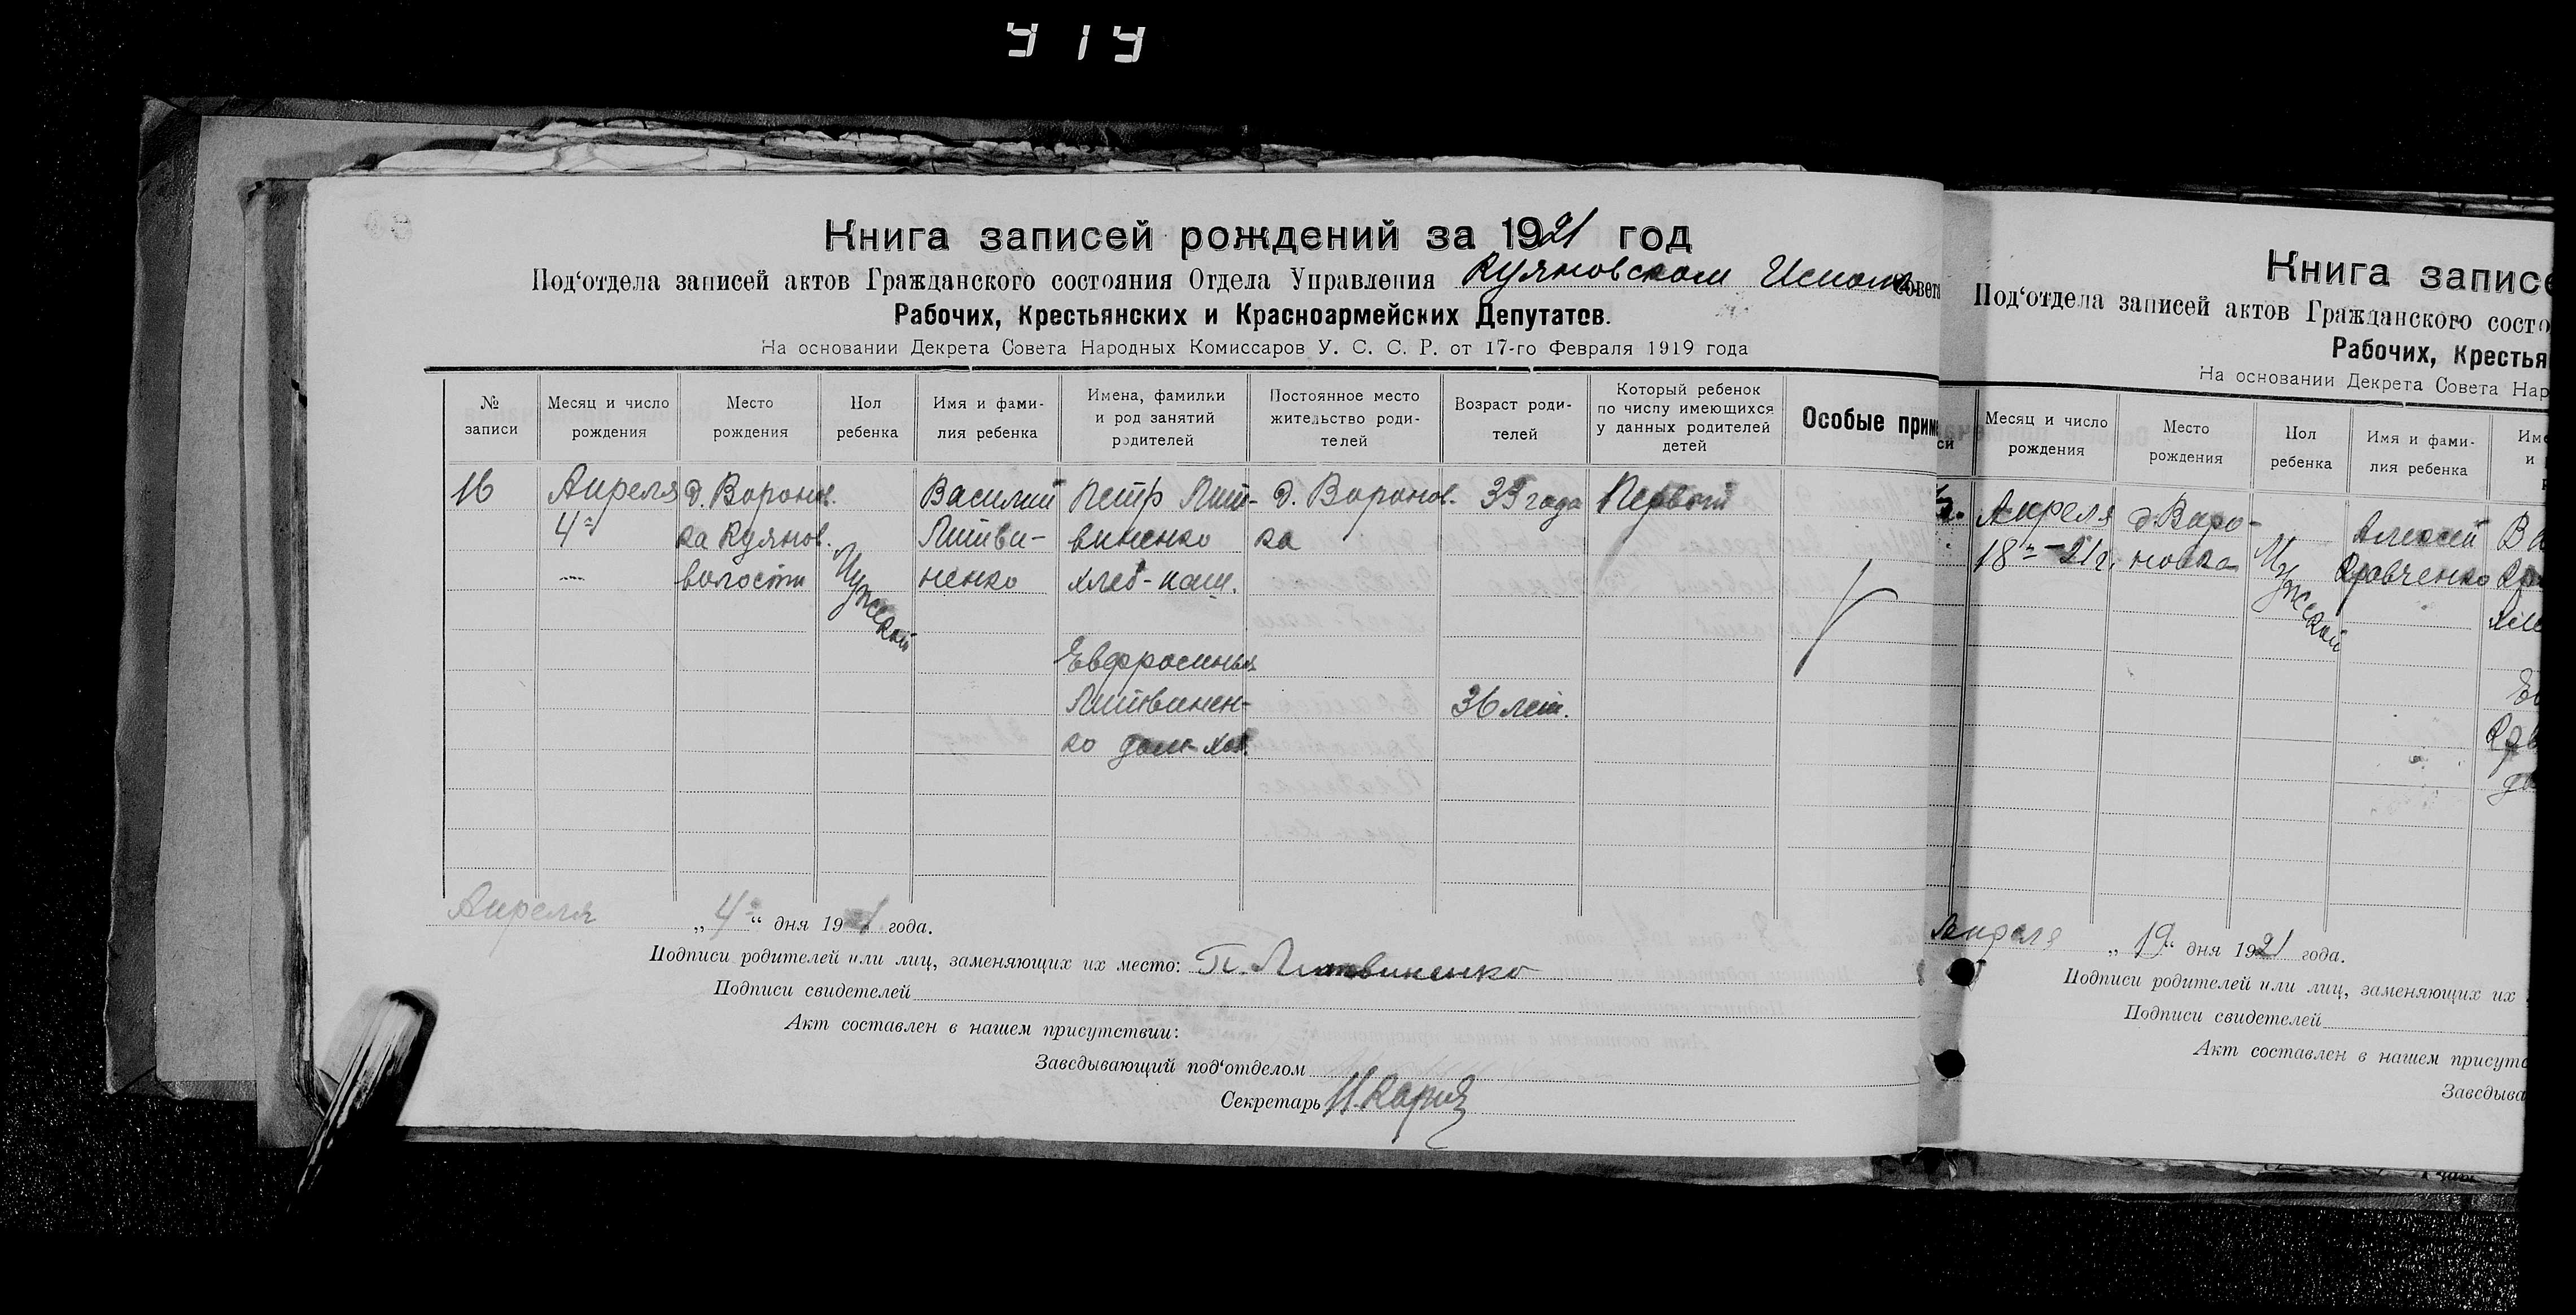 Книга записей рождений за 1921 год
Под‘отдела записей актов Гражданского состояния Отдела Управления Куяновском Исполк. Совета
Рабочих, Крестьянских и Красноармейских Депутатов.
На основании Декрета Совета Народных Комиссаров У. С. С. Р. от 17-го Февраля 1919 года
№ записи
Месяц и число рождения
Место рождения
Пол ребенка
Имя и фамилия ребенка
Имена, фамилии и род занятий родителей
Постоянное место жительство родителей
Возраст родителей
Который ребенок по числу имеющихся у данных родителей детей
Особые приме
16
Апреля
4го
д. Воронов.
ка Куянов.
волости
Мужской
Василий
Литви-
ненко
Петр Лит-
виненко
хлеб-паш.
Евфросинья
Литвинен-
ко дом-хоз.
д. Воронов.
ка
33 года
36 лет.
Первый
Апреля „4“ дня 1921 года.
Подписи родителей или лиц, заменяющих их место: П. Литвиненко
Подписи свидетелей
Акт составлен в нашем присутствии:
Заведывающий под‘отделом
Секретарь
Книга записе
Под‘отдела записей актов Гражданского состо
Рабочих, Крестья
На основании Декрета Совета Нар
си
Месяц и число рождения
Место рождения
Пол ребенка
Имя и фамилия ребенка
Апреля
18го-21г.
д. Воро-
новка
Мужской
Алексей
Кравченко
Апреля „19“ дня 1921 года.
Подписи родителей или лиц, заменяющих их
Подписи свидетелей
Акт составлен в нашем присутс
Заведыва